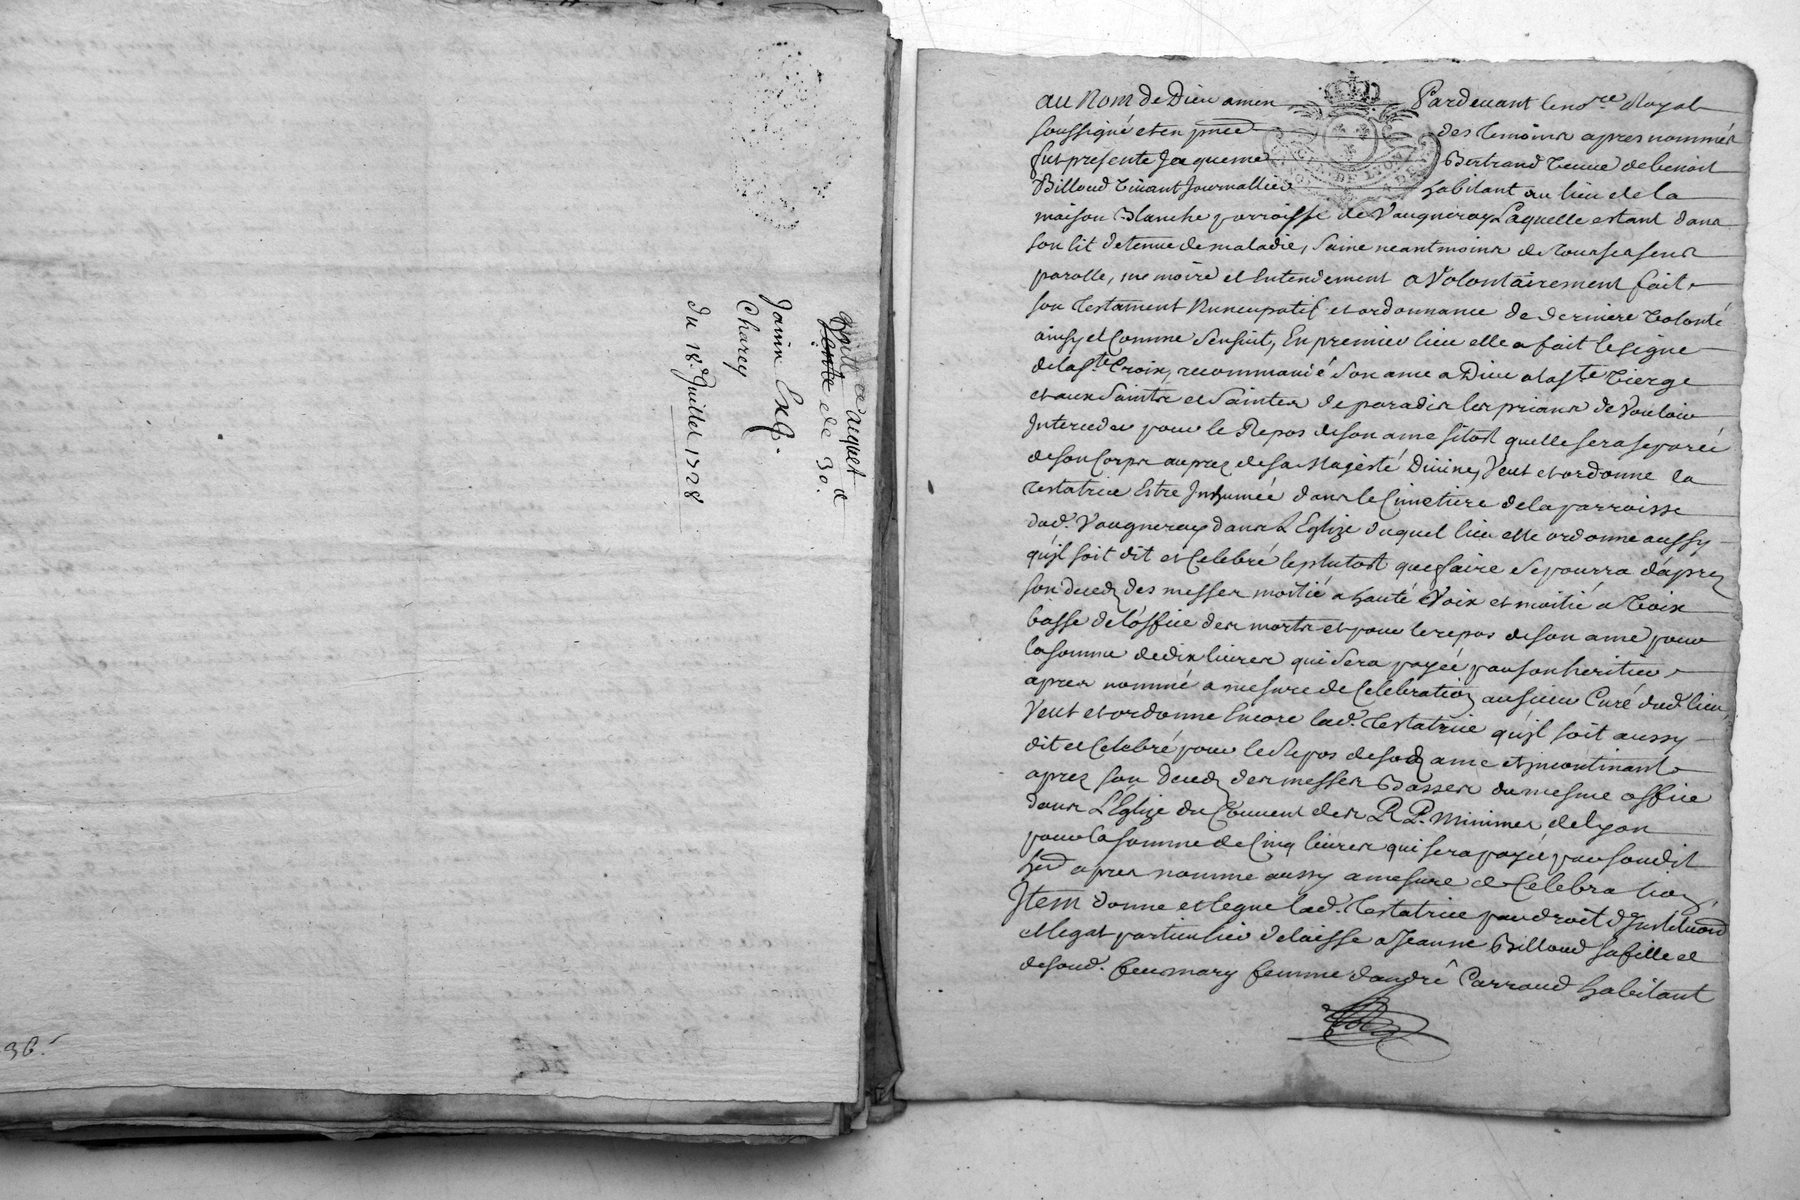 quitt.ce d'acquet &
Vente de 30.
Janin Exg.
Charey
du 18e. Juillet 1728
36.
au Nom de Dieu amen Pardevant le no.re Royal
soussigné et en pnce des temoins apres nommés
fut presente Jaqueme Bertrand veuve de benoit
Billoud vivant Journallier habitant au lieu de la
maison Blanche parroisse de Vaugneray Laquelle estant dans
son lit detenue de maladie, saine neantmoins de tous ses sens
parolle, memoire et Entendement a Volontairement fait
son testament Nuncupatif et ordonnance de derniere volonté
ainsy et Comme s'ensuit, En premier lieu elle a fait le signe
de la s.te Croix, recommandé son ame a Dieu a la s.te vierge
et aux saints et saintes de paradis les priant de Vouloir
Interceder pour le Repos de son ame sitost quelle sera separée
de son Corps auprez de sa Magesté Divine, Veut et ordonne la
testatrice Estre Inhumée dans le Cimetiere de la parroisse
dud. Vaugneray dans L'Eglize duquel lieu elle ordonne aussy
qu'il soit dit et Celebré le plutost que faire se pourra d'aprez
son deced des messes moitié a haute Voix et moitié a voix
basse de l'office des morts et pour le repos de son ame pour
la somme de dix livres qui sera payée par son heritier
apres nommé a mesure de Celebration au sieur Curé dud. lieu,
Veut et ordonne Encore lad. testatrice qu'il soit aussy
dit et Celebré pour le Repos de sod ame et incontinant
aprez son deced des messes Basses du mesme office
dans L'Eglize du Couvent des R. P. Minimes de Lyon
pour la somme de Cinq livres qui sera payée par sondit
her. apres nomme aussy a mesure de Celebration,
Item donne et legue lad. testatrice par droit d'Institu.on
et legat particulier delaisse a Jeanne Billoud sa fille et
de sond. feu mary femme d'andré Carraud habitant